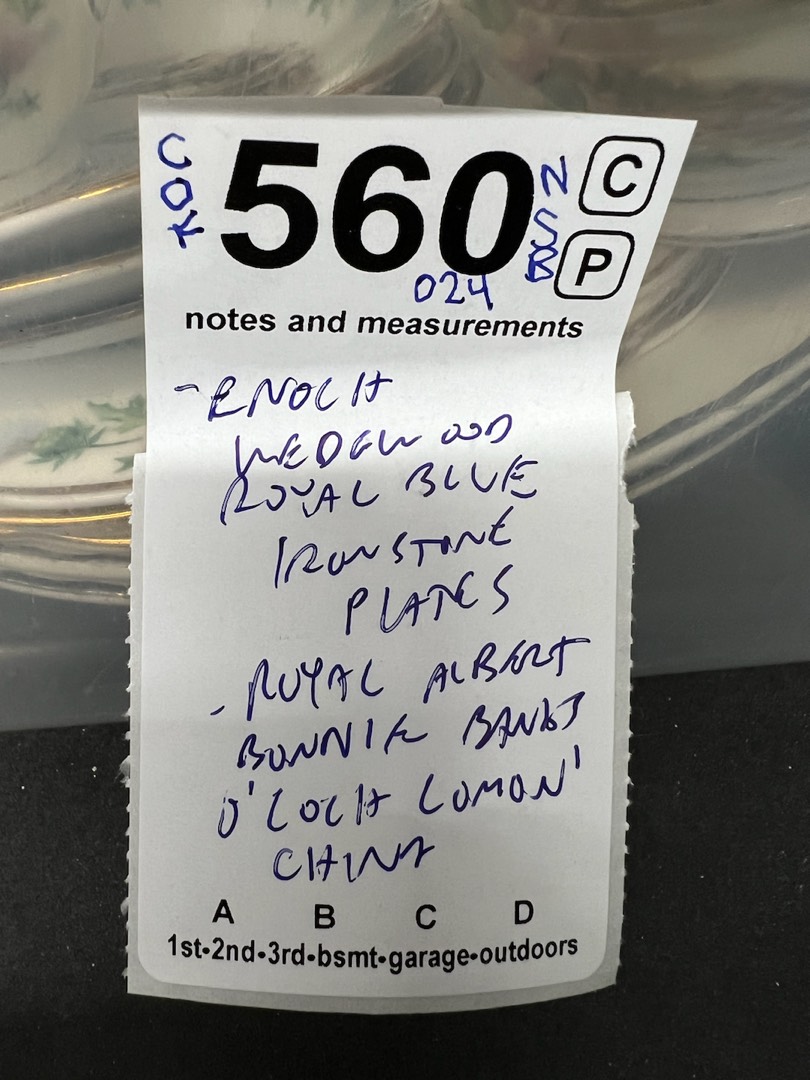 COK 560 NSB C
P
024
notes and measurements
- ENOCH
WEDGWOOD
ROYAL BLUE
IRONSTONE
PLATES
- ROYAL ALBERT
BONNIE BANKS
O'LOCH LOMON'
CHINA
A B C D
1st•2nd•3rd•bsmt•garage•outdoors